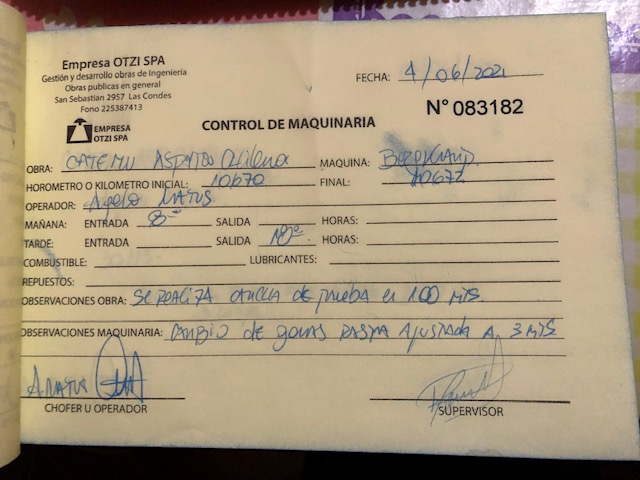 Empresa OTZI SPA
Gestión y desarrollo obras de Ingeniería
Obras publicas en general
San Sebastian 2957 Las Condes
Fono 225387413
EMPRESA
OTZI SPA
CONTROL DE MAQUINARIA
FECHA: 4/06/2021
N° 083182
OBRA: CATEMU ASFALTO Chilena MAQUINA:
HOROMETRO O KILOMETRO INICIAL: 10670 FINAL: 10677
OPERADOR:
MAÑANA: ENTRADA 8:00 SALIDA HORAS:
TARDE: ENTRADA SALIDA 18:00. HORAS:
COMBUSTIBLE: LUBRICANTES:
REPUESTOS:
OBSERVACIONES OBRA: Se realiza cancha de prueba en 100 mts.
OBSERVACIONES MAQUINARIA: cambio de gomas raspa ajustada a 3 mts
CHOFER U OPERADOR
SUPERVISOR